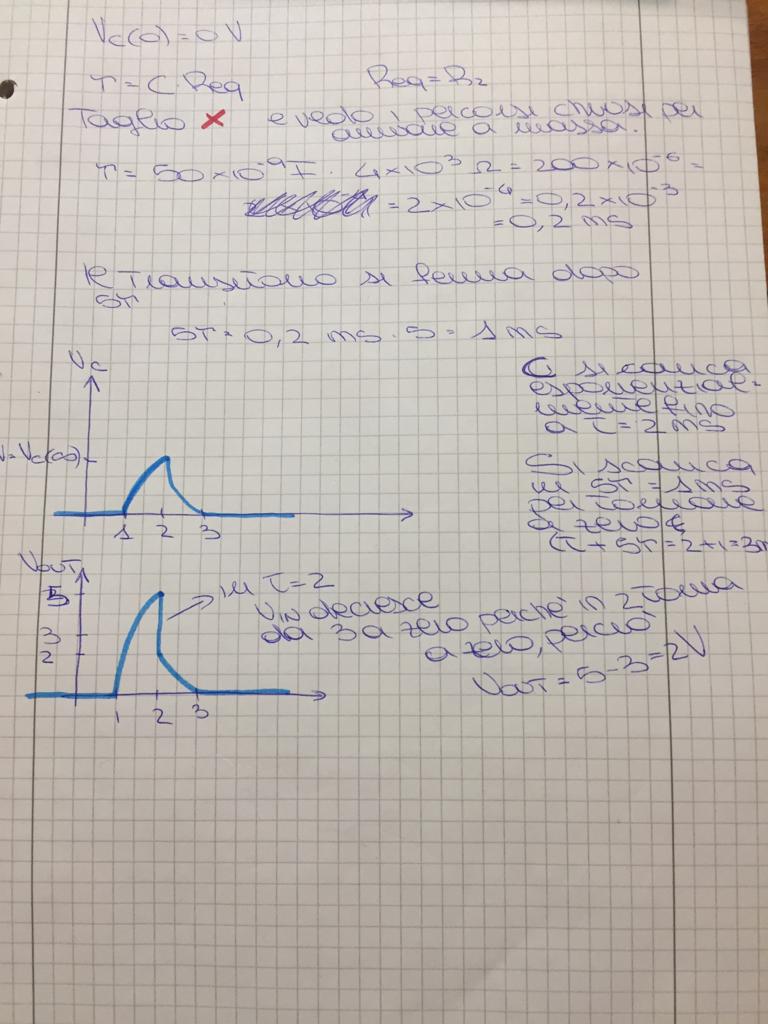 Vc(0) = 0 V
τ = C·Req    Req = R2
Taglio × e vedo i percorsi chiusi per
arrivare a massa.
τ = 50 × 10⁻⁹ F · 4 × 10³ Ω = 200 × 10⁻⁶ =
= 2 × 10⁻⁴ = 0,2 × 10⁻³
= 0,2 ms
Il transitorio si ferma dopo
5τ
5τ = 0,2 ms · 5 = 1 ms
Vc
V = Vc(∞)
1 2 3
C si carica
esponenzial-
mente fino
a t = 2 ms
Si scarica
in 5τ = 1ms
per tornare
a zero
(t + 5τ = 2 + 1 = 3m
Vout
5
3
2
1 2 3
in t = 2
Vin decresce
da 3 a zero perché in 2 torna
a zero, perciò
Vout = 5 - 3 = 2V